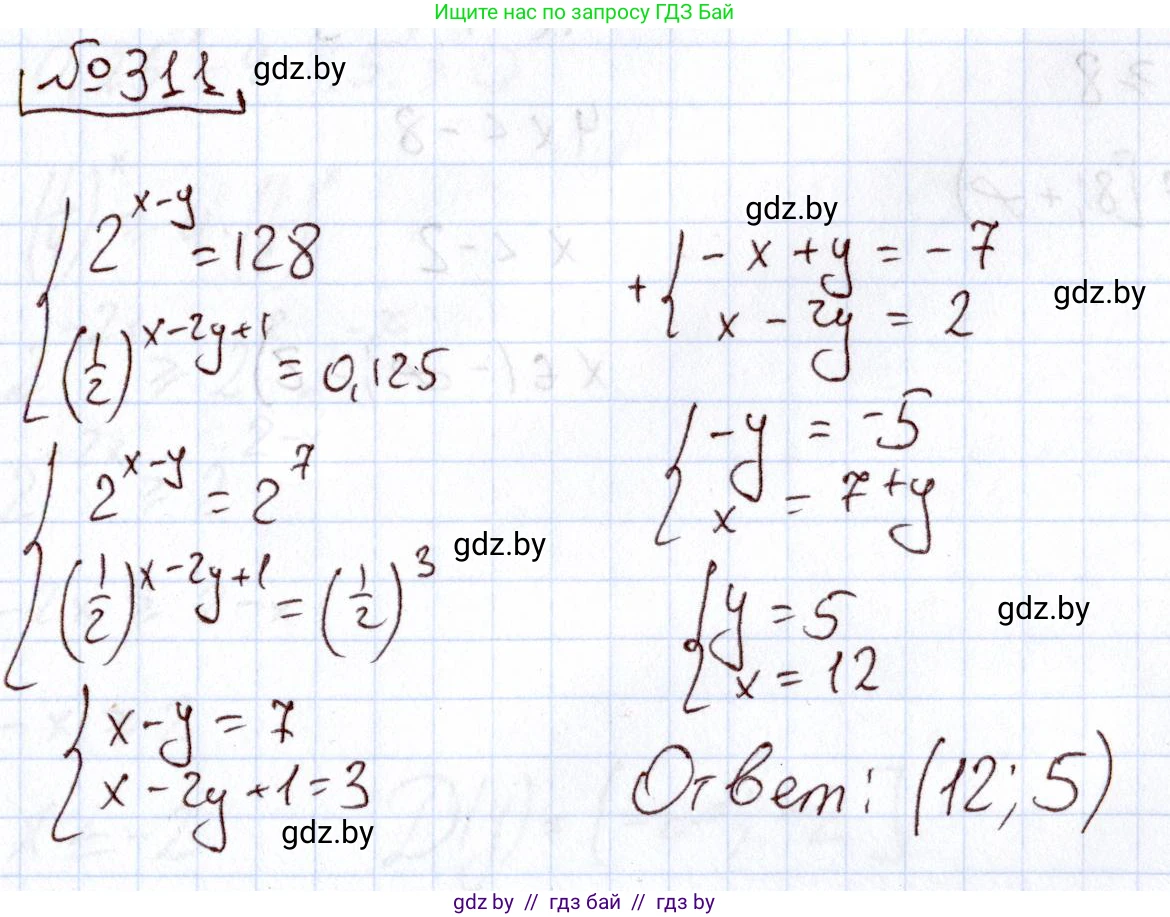 Ищите нас по запросу ГДЗ Бай
№311 gdz.by
2^(x-y) = 128
(1/2)^(x-2y+1) = 0,125
2^(x-y) = 2^7
gdz.by
(1/2)^(x-2y+1) = (1/2)^3
x-y = 7
x-2y+1=3
gdz.by
gdz.by
+ -x+y = -7
gdz.by
x-2y = 2
-y = -5
x = 7+y
y = 5
gdz.by
x = 12
Ответ: (12; 5)
gdz.by // гдз бай // гдз by